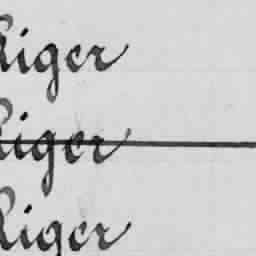 Riger
Riger
Riger